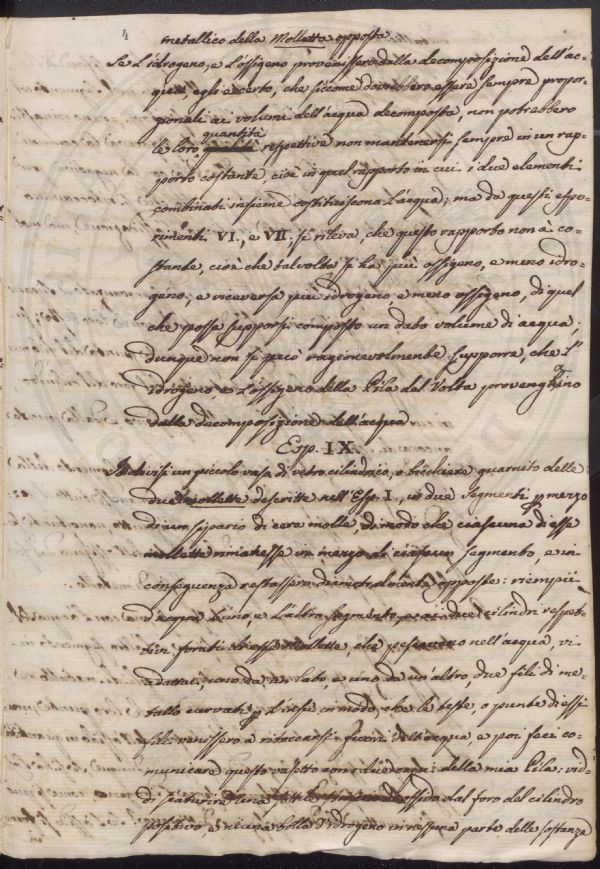 metallico della Molletta opposta
Se l'idrogeno, e l'ossigeno provenissero dalla decomposizione dell'ac-
qua, egli è certo, che siccome dovrebbero essere sempre propor-
zionali ai volumi dell'acqua decomposta, non potrebbero
quantità
le loro respettive non mantenersi sempre in un rap-
porto costante cioè in quel rapporto in cui i due elementi
combinati insieme costituiscono l'acqua; ma da questi espe-
rimenti VI., e VII. si rileva, che questo rapporto non è co-
stante, cioè che talvolta si ha più ossigeno, e meno idro-
geno, e viceversa più idrogeno e meno ossigeno, di quel
che possa supporsi composto un dato volume di acqua;
dunque non si può ragionevolmente supporre, che l'
idrogeno e l'ossigeno della Pila del Volta provenghino
dalla decomposizione dell'acqua
Esp. IX.
Divisi un piccolo vaso di vetro cilindrico, o bicchiere guarnito delle
due mollette descritte nell'Esp. I., in due segmenti p mezzo
di un sipario di cera molle, di modo che ciascuna di esse
mollette rimanesse in mezzo di ciascun segmento, e in
conseguenza restassero diametralmente opposte: riempii
d'acqua l'uno, e l'altro segmento, e ai due cilindri respet-
tivi forati di esse mollette, che pescavano nell'acqua, vi
adattai, uno da un lato, e uno da un'altro, due fili di me-
tallo curvati p l'insù in modo, che le teste, o punte di essi
fili venissero a ritoccarsi fuori dell'acqua, e poi feci co-
municare questo vasetto con i due capi della mia Pila: vid-
di scaturire una dal foro del cilindro
positivo e niuna bolla d'idrogeno in nessuna parte delle sostanze